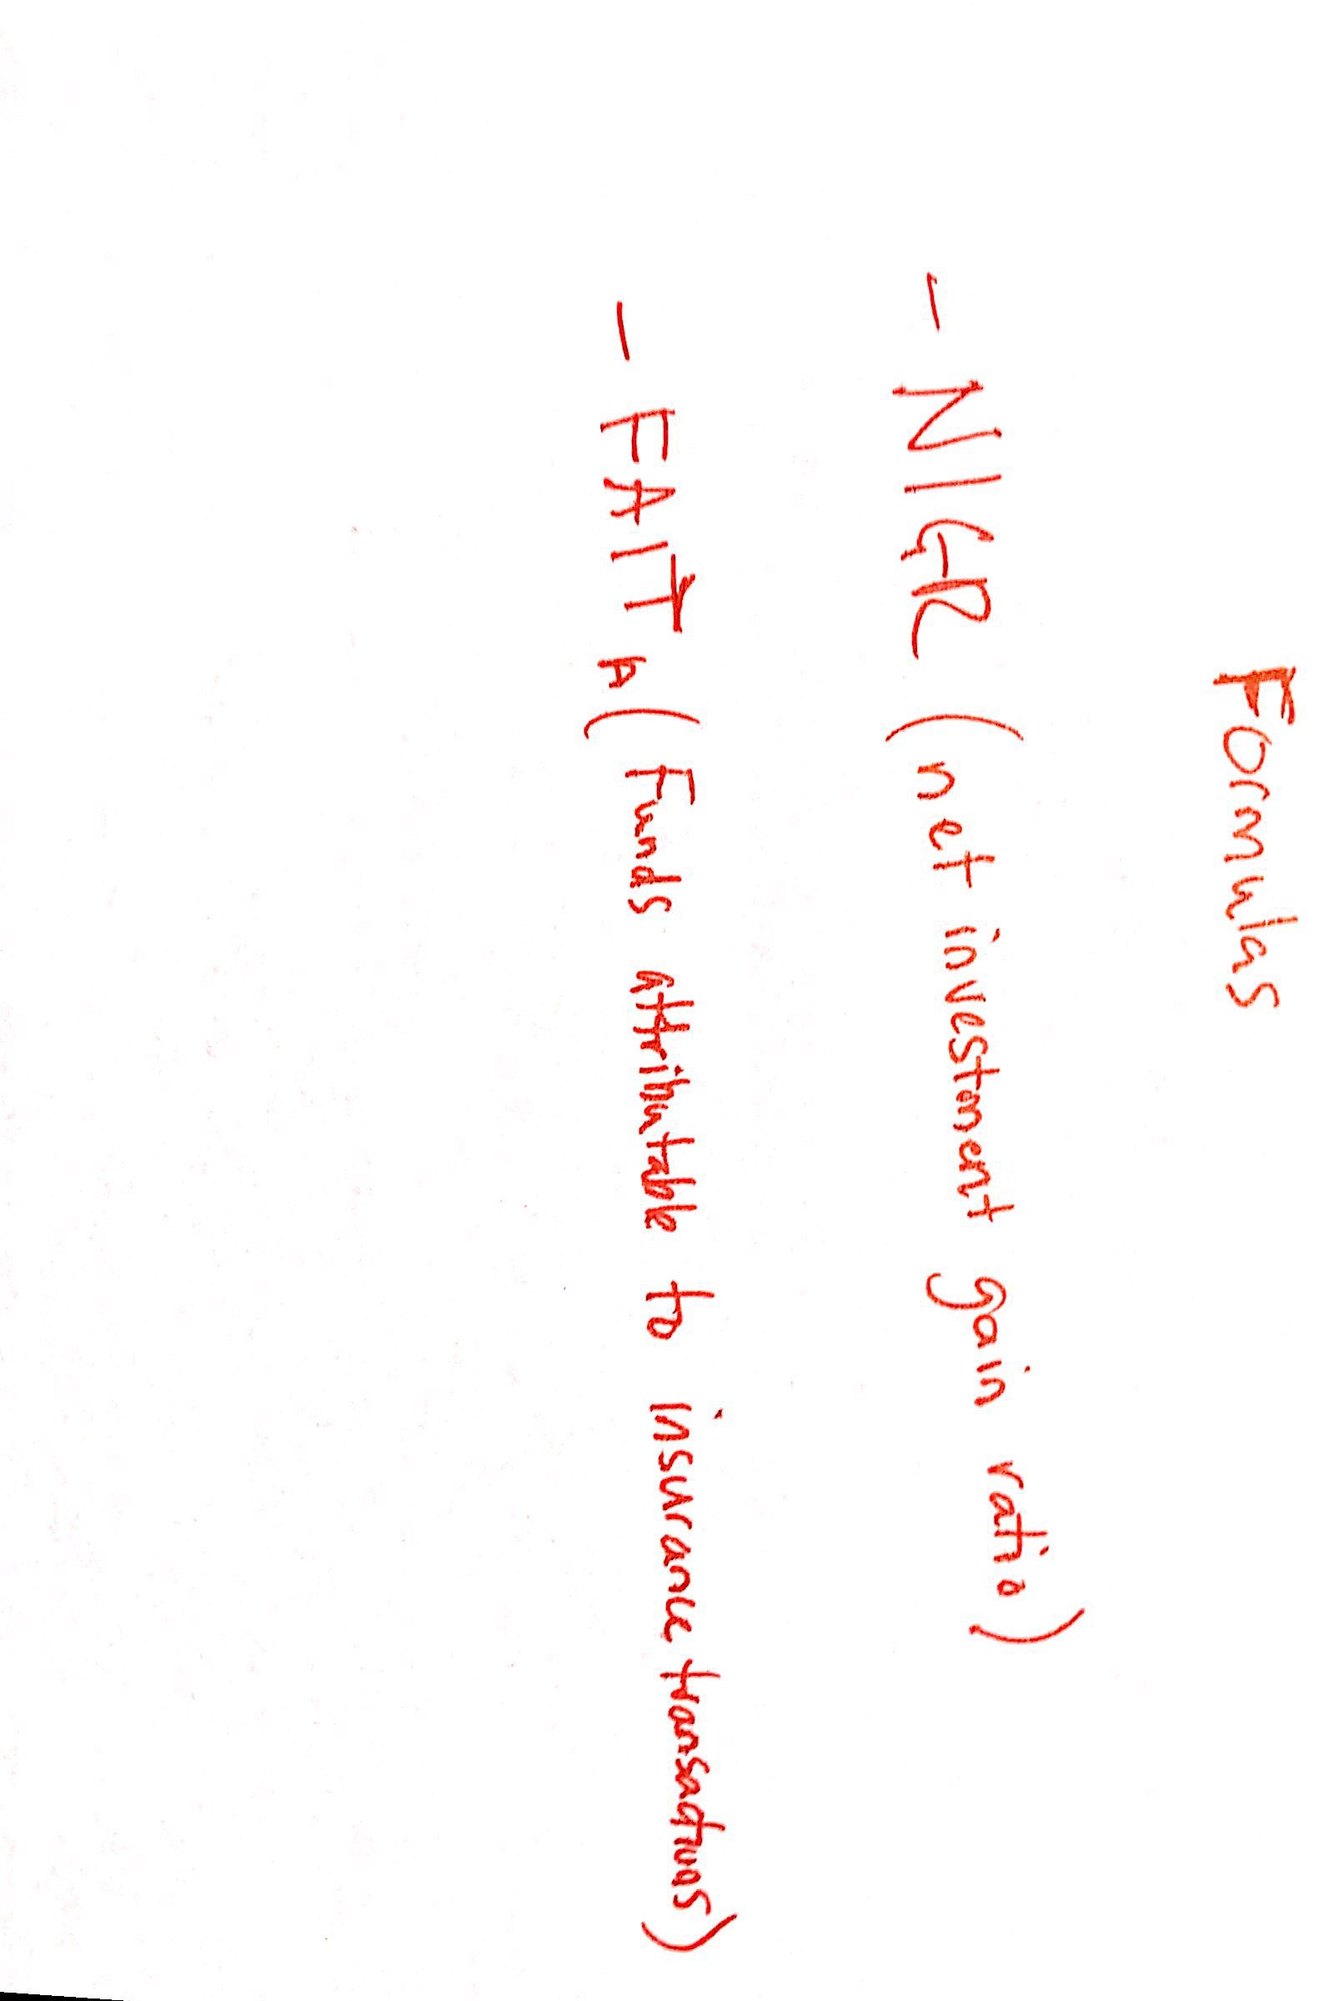 Formulas
- NIGR (net investment gain ratio)
- FAIT A (Funds attributable to insurance transactions)